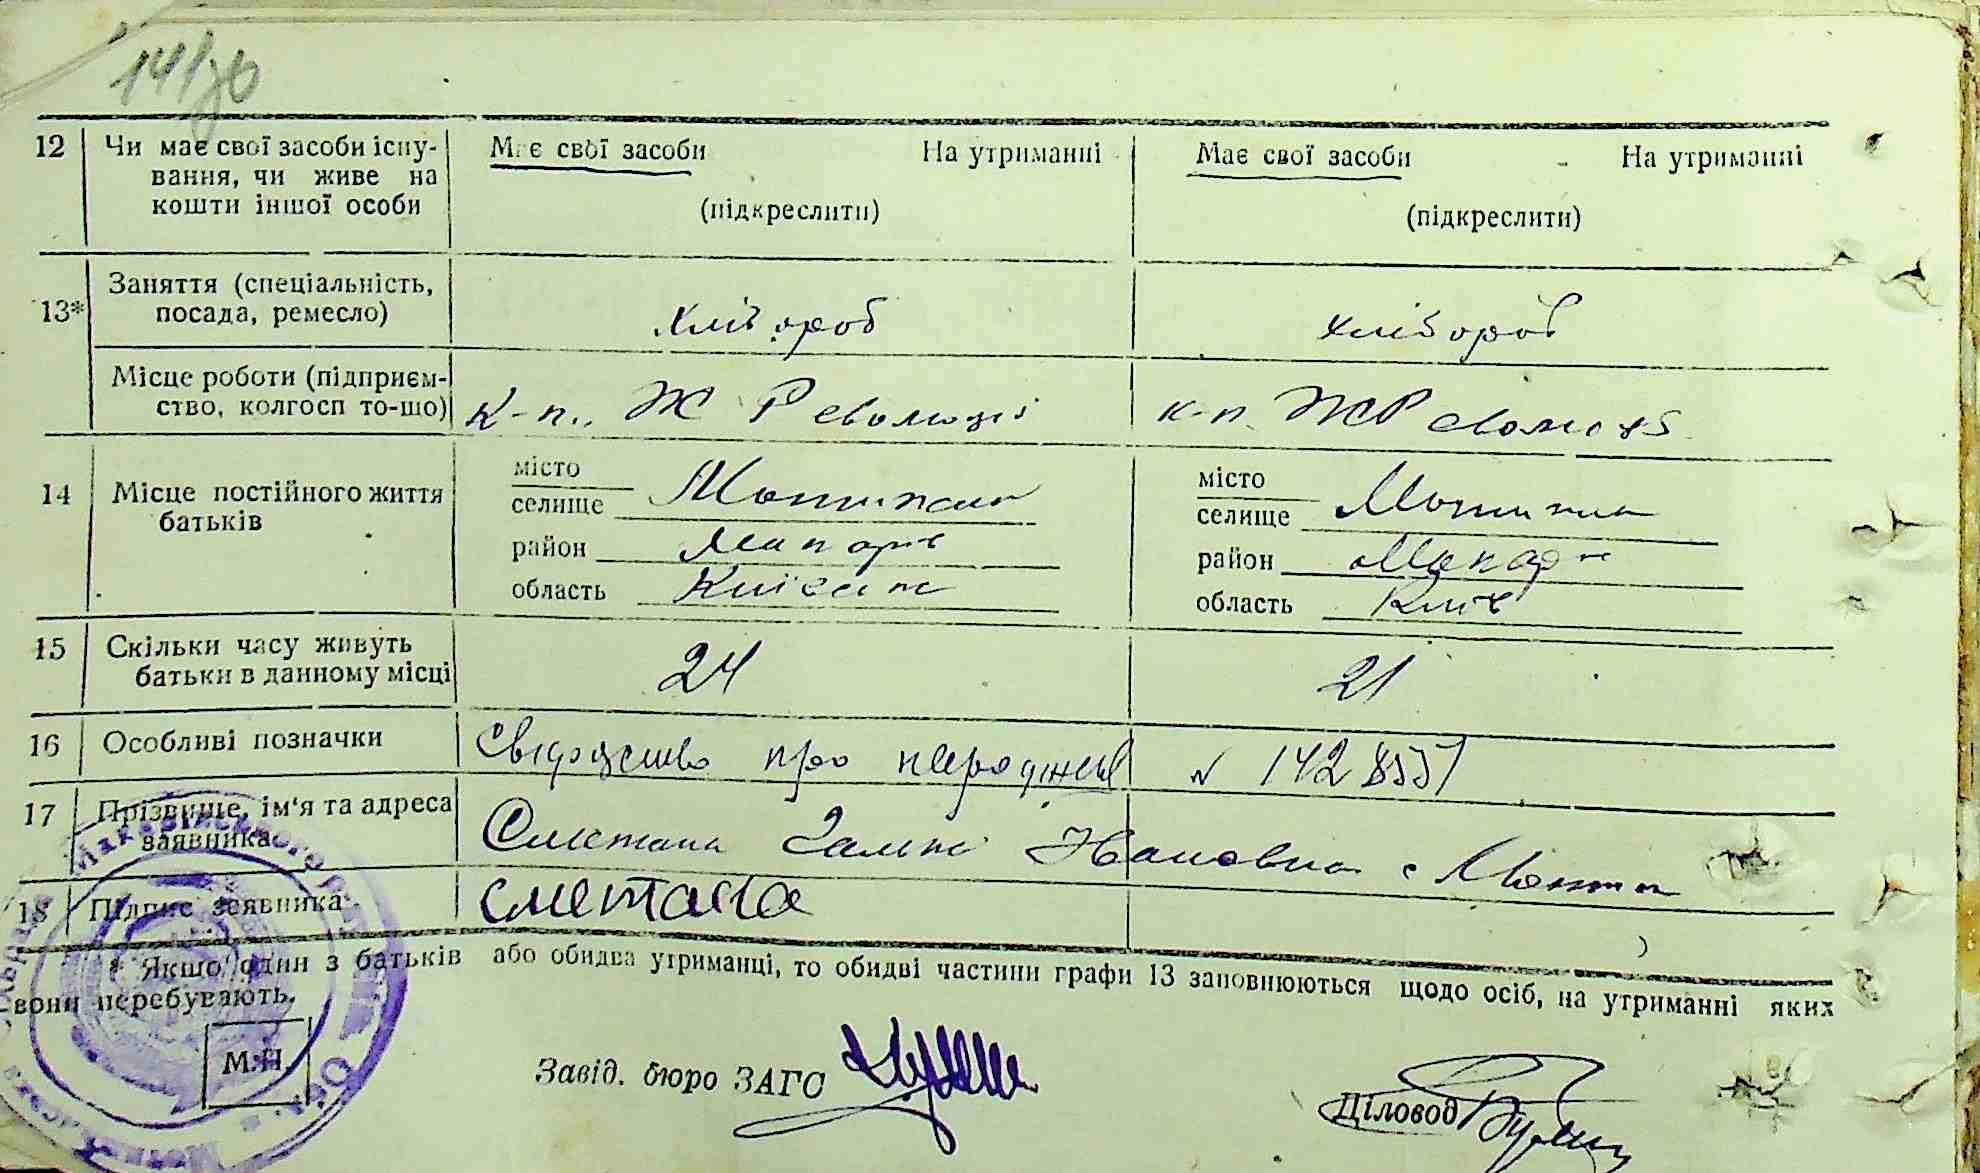 12 Чи має свої засоби існу-
вання, чи живе на
кошти іншої особи
Має свої засоби На утриманні
(підкреслити)
Має свої засоби На утриманні
(підкреслити)
13* Заняття (спеціальність,
посада, ремесло)
хлібороб
хлібороб
Місце роботи (підприєм-
ство, колгосп то-що)
к-п. Ж Революції
к-п. Ж Революції
14 Місце постійного життя
батьків
місто
селище Мотижин
район Макарів
область Київськ
місто
селище Мотижин
район Макарів
область Київ
15 Скільки часу живуть
батьки в данному місці
24
21
16 Особливі позначки
Свідоцтво про народження
N 142855
17 Прізвище, ім'я та адреса
заявника
Сметана Івановна с
18 Підпис заявника
Сметана
* Якщо один з батьків або обидва утриманці, то обидві частини графи 13 заповнюються щодо осіб, на утриманні яких
вони перебувають.
М.П.
Завід. бюро ЗАГС
Діловод